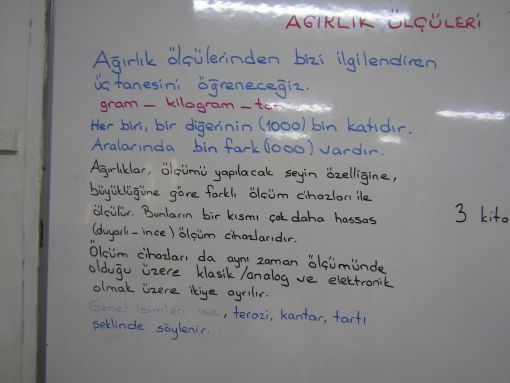 AĞIRLIK ÖLÇÜLERİ
Ağırlık ölçülerinden bizi ilgilendiren
üç tanesini öğreneceğiz.
gram - kilogram - ton
Her biri, bir diğerinin (1000) bin katıdır.
Aralarında bin fark (1000) vardır.
Ağırlıklar, ölçümü yapılacak şeyin özelliğine,
büyüklüğüne göre farklı ölçüm cihazları ile
ölçülür. Bunların bir kısmı çok daha hassas
(duyarlı - ince) ölçüm cihazlarıdır.
Ölçüm cihazları da aynı zaman ölçümünde
olduğu üzere klasik/analog ve elektronik
olmak üzere ikiye ayrılır.
Genel isimleri ise, terazi, kantar, tartı
şeklinde söylenir.
3 kilo